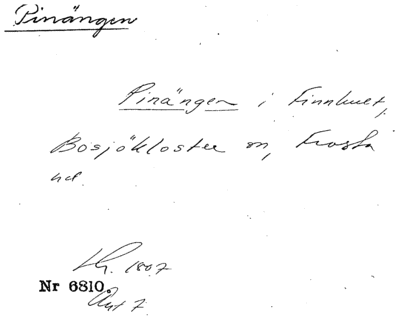 Pinängen
Pinängen i Finnhult,
Bosjökloster sn, Frosta
hd
1807
Nr 6810.
Akt 7